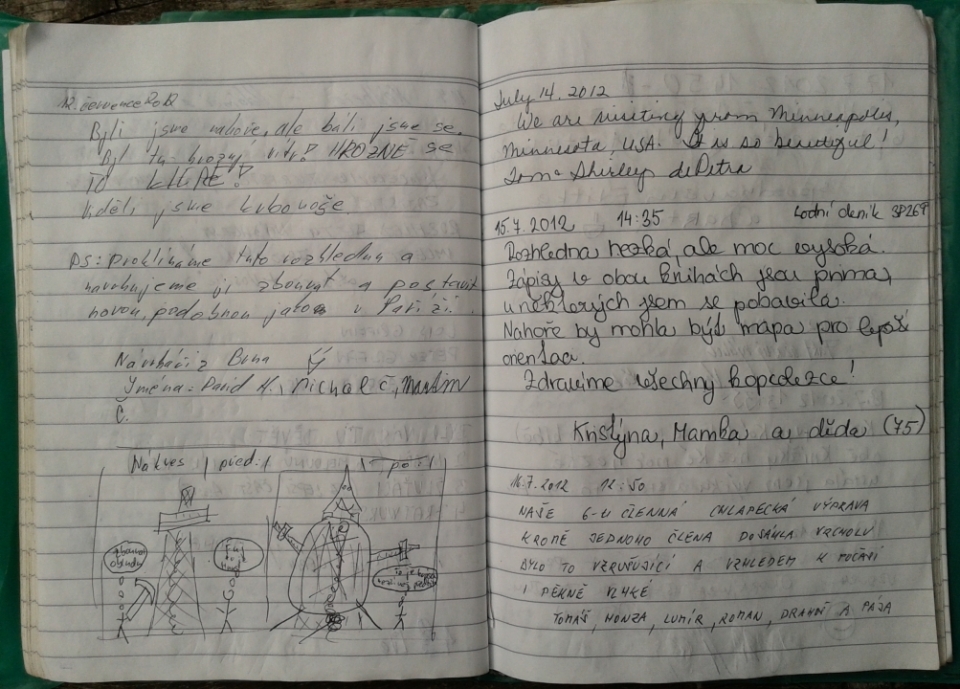 12. července 2012
Byli jsme nahoře, ale báli jsme se.
Byl tu hrozný vítr! HROZNĚ se
TO KLEPE!
Viděli jsme krkonoše.
PS: Proklínáme tuto rozhlednu a
navrhujeme ji zbourat a postavit
novou, podobnou jako v Paříži.
Návrháři z Brna
Jména: David K., Michal Č, Martin
C.
Nákres před. po:
July 14. 2012
We are visiting from Minneapolis,
Minnesota, USA. It is so beautiful!
Tom & Shirley dePetra
15.7.2012 14:35 Lodní deník
Rozhledna hezká, ale moc vysoká.
Zápisy v obou knihách jsou prima,
u některých jsem se pobavila.
Nahoře by mohla být mapa pro lepší
orientaci.
Zdravíme všechny kopcolezce!
Kristýna, Mamka a děda (75)
16.7.2012 12:50
NAŠE 6-ti ČLENNÁ CHLAPECKÁ VÝPRAVA
KROMĚ JEDNOHO ČLENA DOSÁHLA VRCHOLU
BYLO TO VZRUŠUJÍCÍ A VZHLEDEM K POČASÍ
I PĚKNĚ VLHKÉ
TOMÁŠ, HONZA, LUMÍR, ROMAN, DRAHOŠ A PÁJA